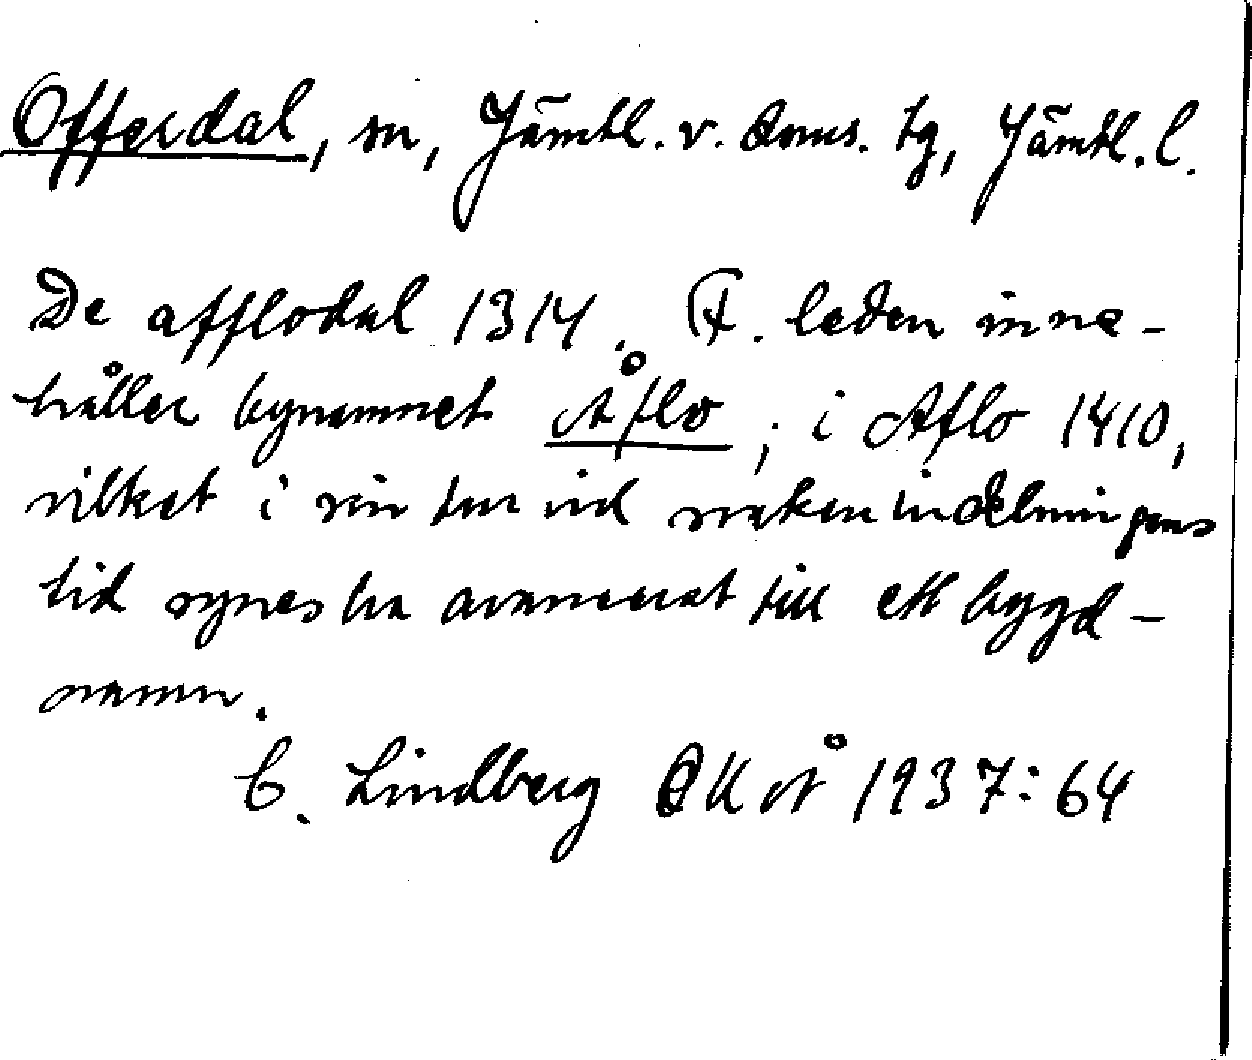 Offerdal, sn, Jämtl. v. doms. tg, Jämtl. l.
De afflodal 1314. F. leden inne-
håller bynamnet Åflo; i Aflo 1410,
vilket i sin tur vid sockenindelningens
tid synes ha avancerat till ett bygd-
namn.
C. Lindberg OKÅ 1937:64